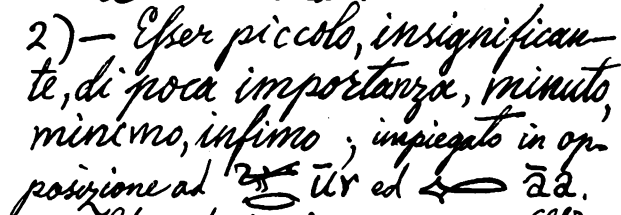 2)— Esser piccolo, insignifican–
te, di poca importanza, minuto,
minimo, infimo ; impiegato in op-
posizione ad 𓅨𓂋 ūr ed 𓉻 āa.